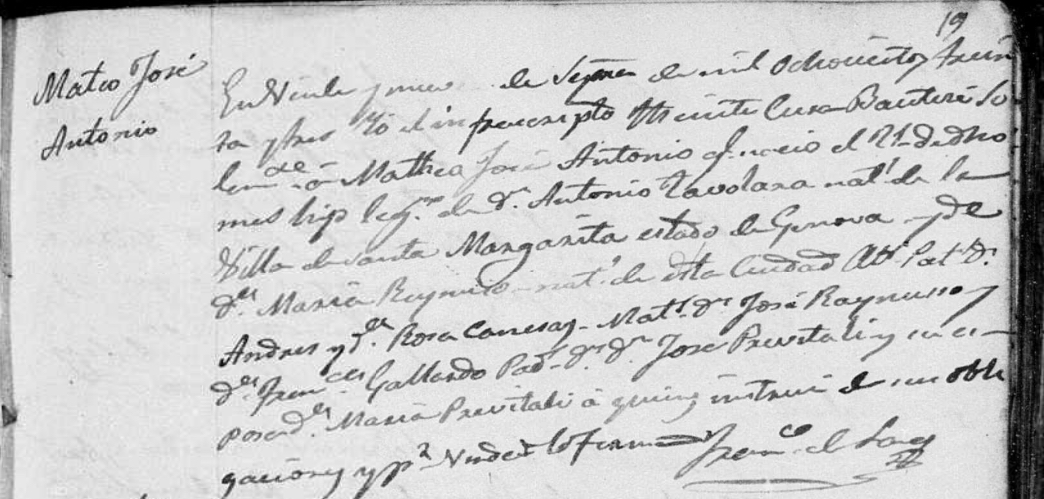 19
Mateo José
Antonio
En Veinte y nueve de de mil Ochocientos trein
ta y tres Yo el infraescripto theniente Cura Bauticé So
lemte á Matheo José Antonio q. nacio el 21 de dho
mes hijo legmo de Dn. Antonio Tavolara natl. de la
Villa de Santa Margarita estado de Genova y de
Da. Maria natl. de esta Ciudad Abs. Pats. Dn.
Andres y Da. Rosa Canesa y Mats. Dn. José
Da. Franca Gallardo Pads. Dn. José Previtali y su es
posa Da. Maria Previtali á quienes instruí de sus obli
gaciones y pr. Verdad lo firmo Franco